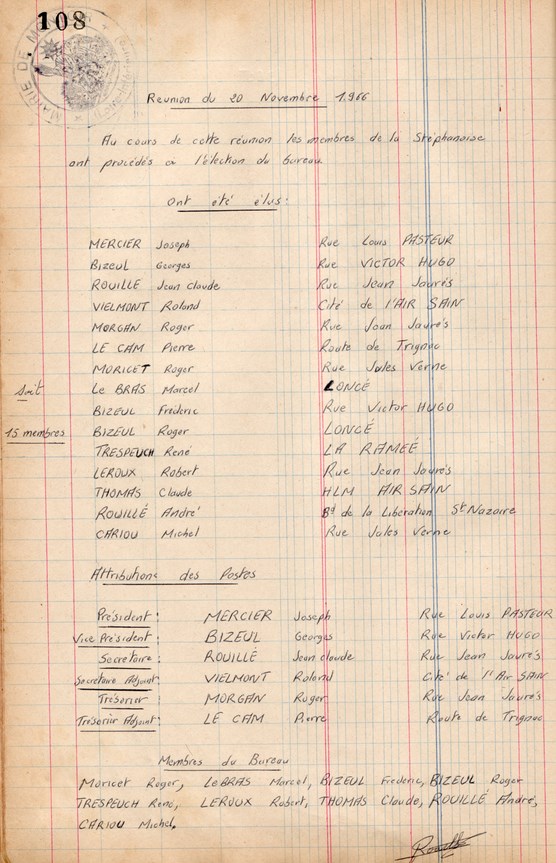 108
MAIRIE DE M
Réunion du 20 Novembre 1966
Au cours de cette réunion les membres de la Stéphanoise
ont procédés a l'élection du bureau
Ont été élus:
MERCIER Joseph Rue Louis PASTEUR
BIZEUL Georges Rue VICTOR HUGO
ROUILLÉ Jean Claude Rue Jean Jaurés
VIELMONT Roland Cité de l'AIR SAIN
MORGAN Roger Rue Jean Jaurés
LE CAM Pierre Route de Trignac
MORICET Roger Rue Jules Verne
Soit Le BRAS Marcel LONCÉ
BIZEUL Fréderic Rue Victor HUGO
15 membres BIZEUL Roger LONCÉ
TRESPEUCH René LA RAMEÉ
LEROUX Robert Rue Jean Jaurés
THOMAS Claude HLM AIR SAIN
ROUILLÉ André Bd de la Libération St Nazaire
CARIOU Michel Rue Jules Verne
Attributions des Postes
Président: MERCIER Joseph Rue Louis PASTEUR
Vice Président: BIZEUL Georges Rue Victor HUGO
Secrétaire: ROUILLÉ Jean claude Rue Jean Jaurés
Secrétaire Adjoint: VIELMONT Roland Cité de l'Air SAIN
Trésorier: MORGAN Roger Rue Jean Jaurés
Trésorier Adjoint: LE CAM Pierre Route de Trignac
Membres du Bureau
Moricet Roger, Le BRAS Marcel, BIZEUL Frederic, BIZEUL Roger
TRESPEUCH René, LEROUX Robert, THOMAS Claude, ROUILLÉ André,
CARIOU Michel.
Rouillé